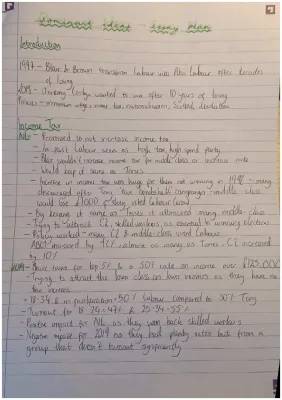 Introduction
1997 - Blair & Brown transform Labour was New Labour after decades
of losing
2019 - Jeremy Corbyn wanted to win after 10 years of losing
Policies - minimum wage, income tax, nationalisation, Scottish devolution
Income Tax
NL - Promised to not increase income tax
- In past Labour seen as high tax, high spend party
- Blair wouldn't increase income tax for middle class or increase rate
- Would keep it same as Tories
- Increase in income tax was huge for them not winning in 1992 - many
discouraged after Tory tax bombshell campaign - middle class
would lose £1000 if they voted Labour
- By keeping it same as Tories it attracted many middle-class
- Trying to C2 skilled workers as essential to winning elections
- worked - many C2 & middle class voted Labour
ABC1 increased by 12% as many as Tories - C2 increased
by 10%
2019 - taxes for top 5% & a 50% rate on income over £125,000
- Trying to attract the lower class as less incomes as they have no
tax increase
- 18-34 in particular - 50% Labour compared to 30% Tory
- Turnout for 18-24 = 47% & 25-34 = 55%
- Positive impact for NL as they won back skilled workers
- Negative impact for 2019 as they had plenty votes but from a
group that doesn't turnout significantly